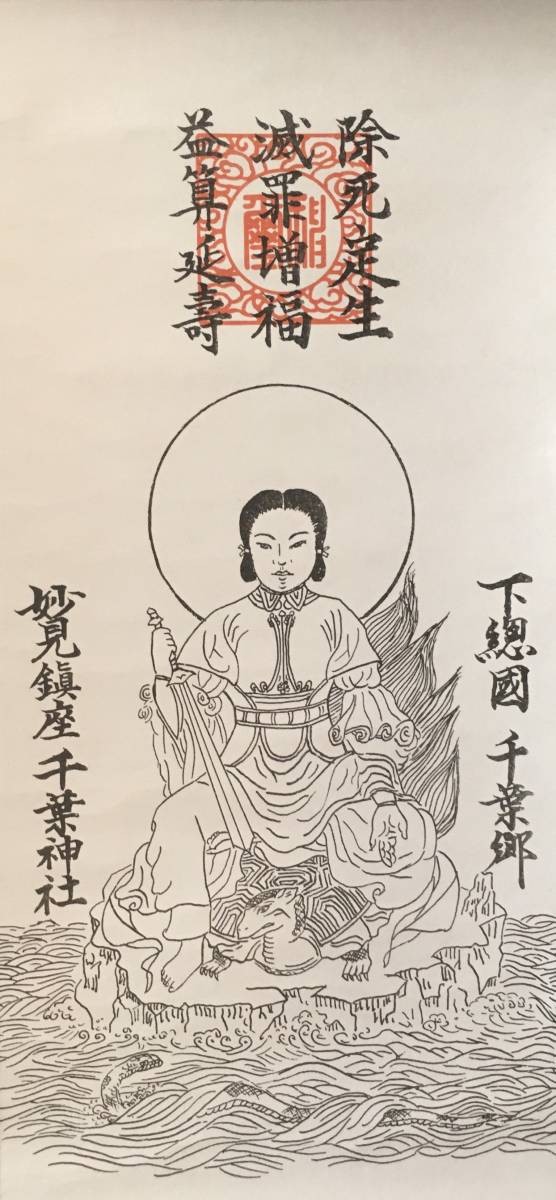 除死定生
滅罪増福
益算延壽
下總國 千葉郷
妙見鎮座 千葉神社